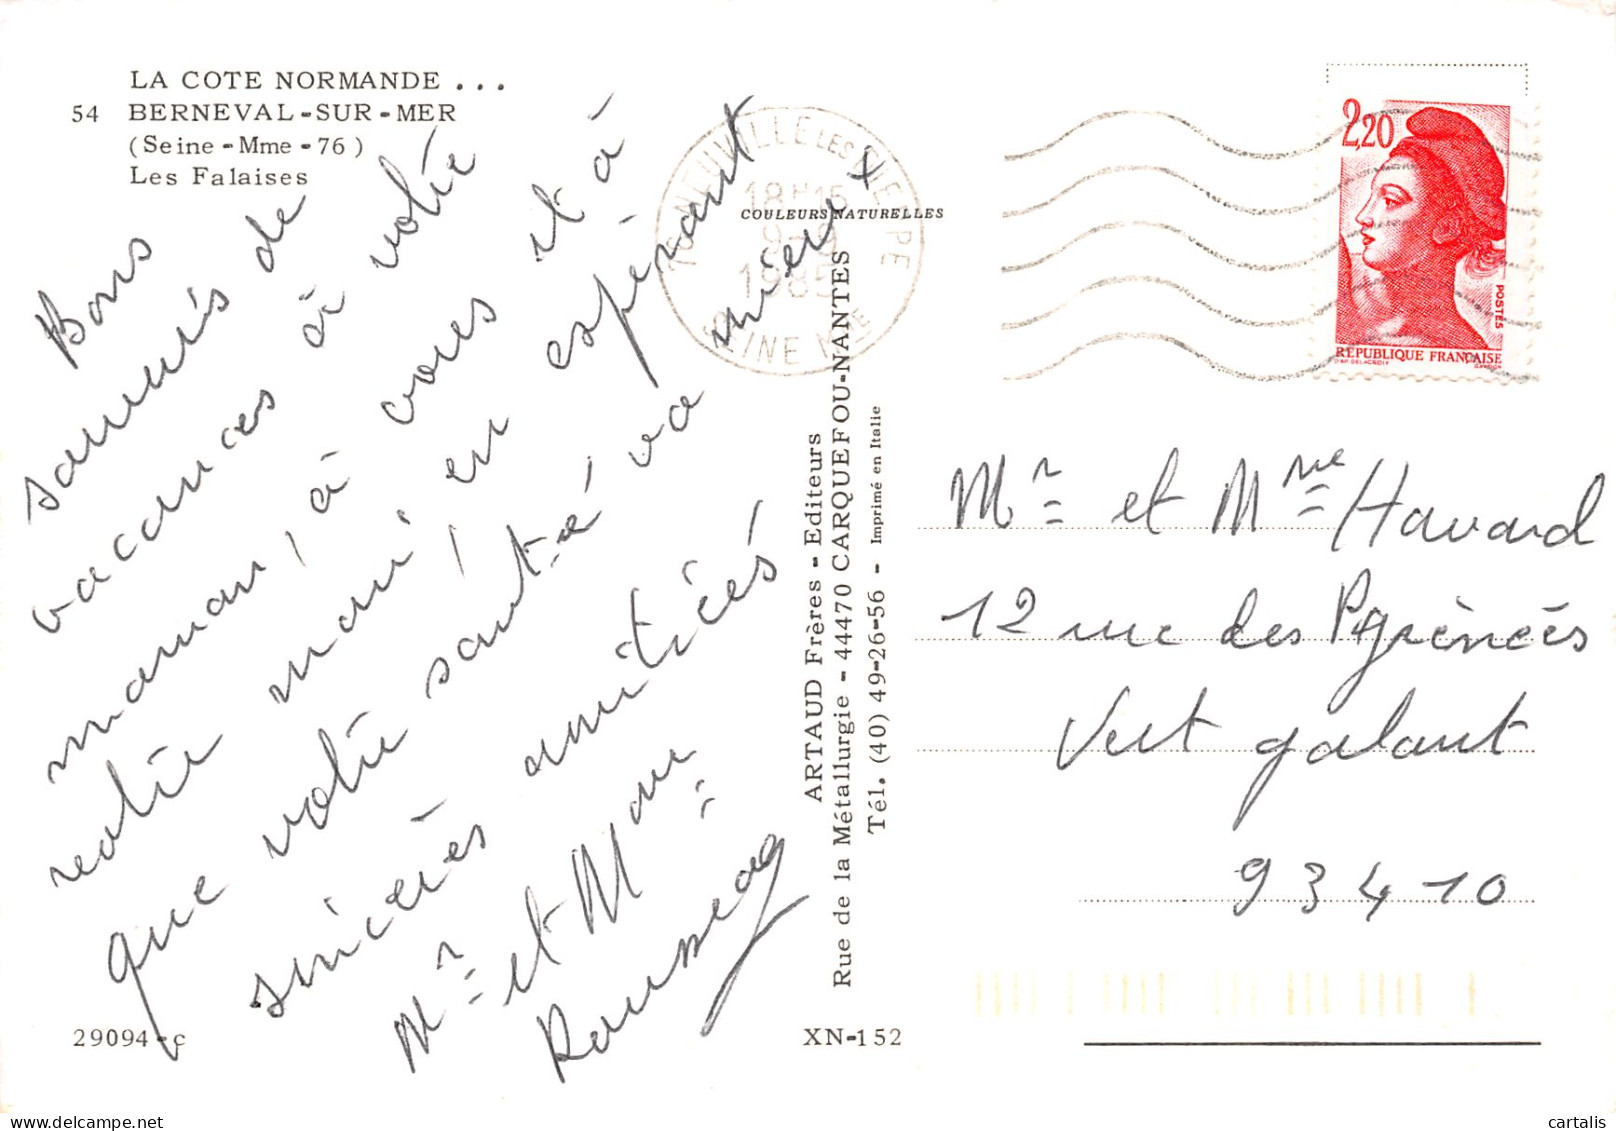 LA COTE NORMANDE ...
54 BERNEVAL-SUR-MER
(Seine-Mme-76)
Les Falaises
Bons
souvenirs de
vacances à votre
maman, à vous et à
votre mari en espérant
que votre santé va mieux
sincères amitiés
Mr et Mme
29094-c
XN-152
COULEURS NATURELLES
ARTAUD Frères - Editeurs
Rue de la Métallurgie - 44470 CARQUEFOU-NANTES
Tél. (40) 49-26-56 - Imprimé en Italie
NEUVILLE LES DIEPPE
18H15
9-9
1985
SEINE Mme
2,20
POSTES
REPUBLIQUE FRANÇAISE
D'AP. DELACROIX GANDON
Mr et Mme Havard
12 rue des Pyrénées
Vert galant
93410
cartalis
delcampe.net